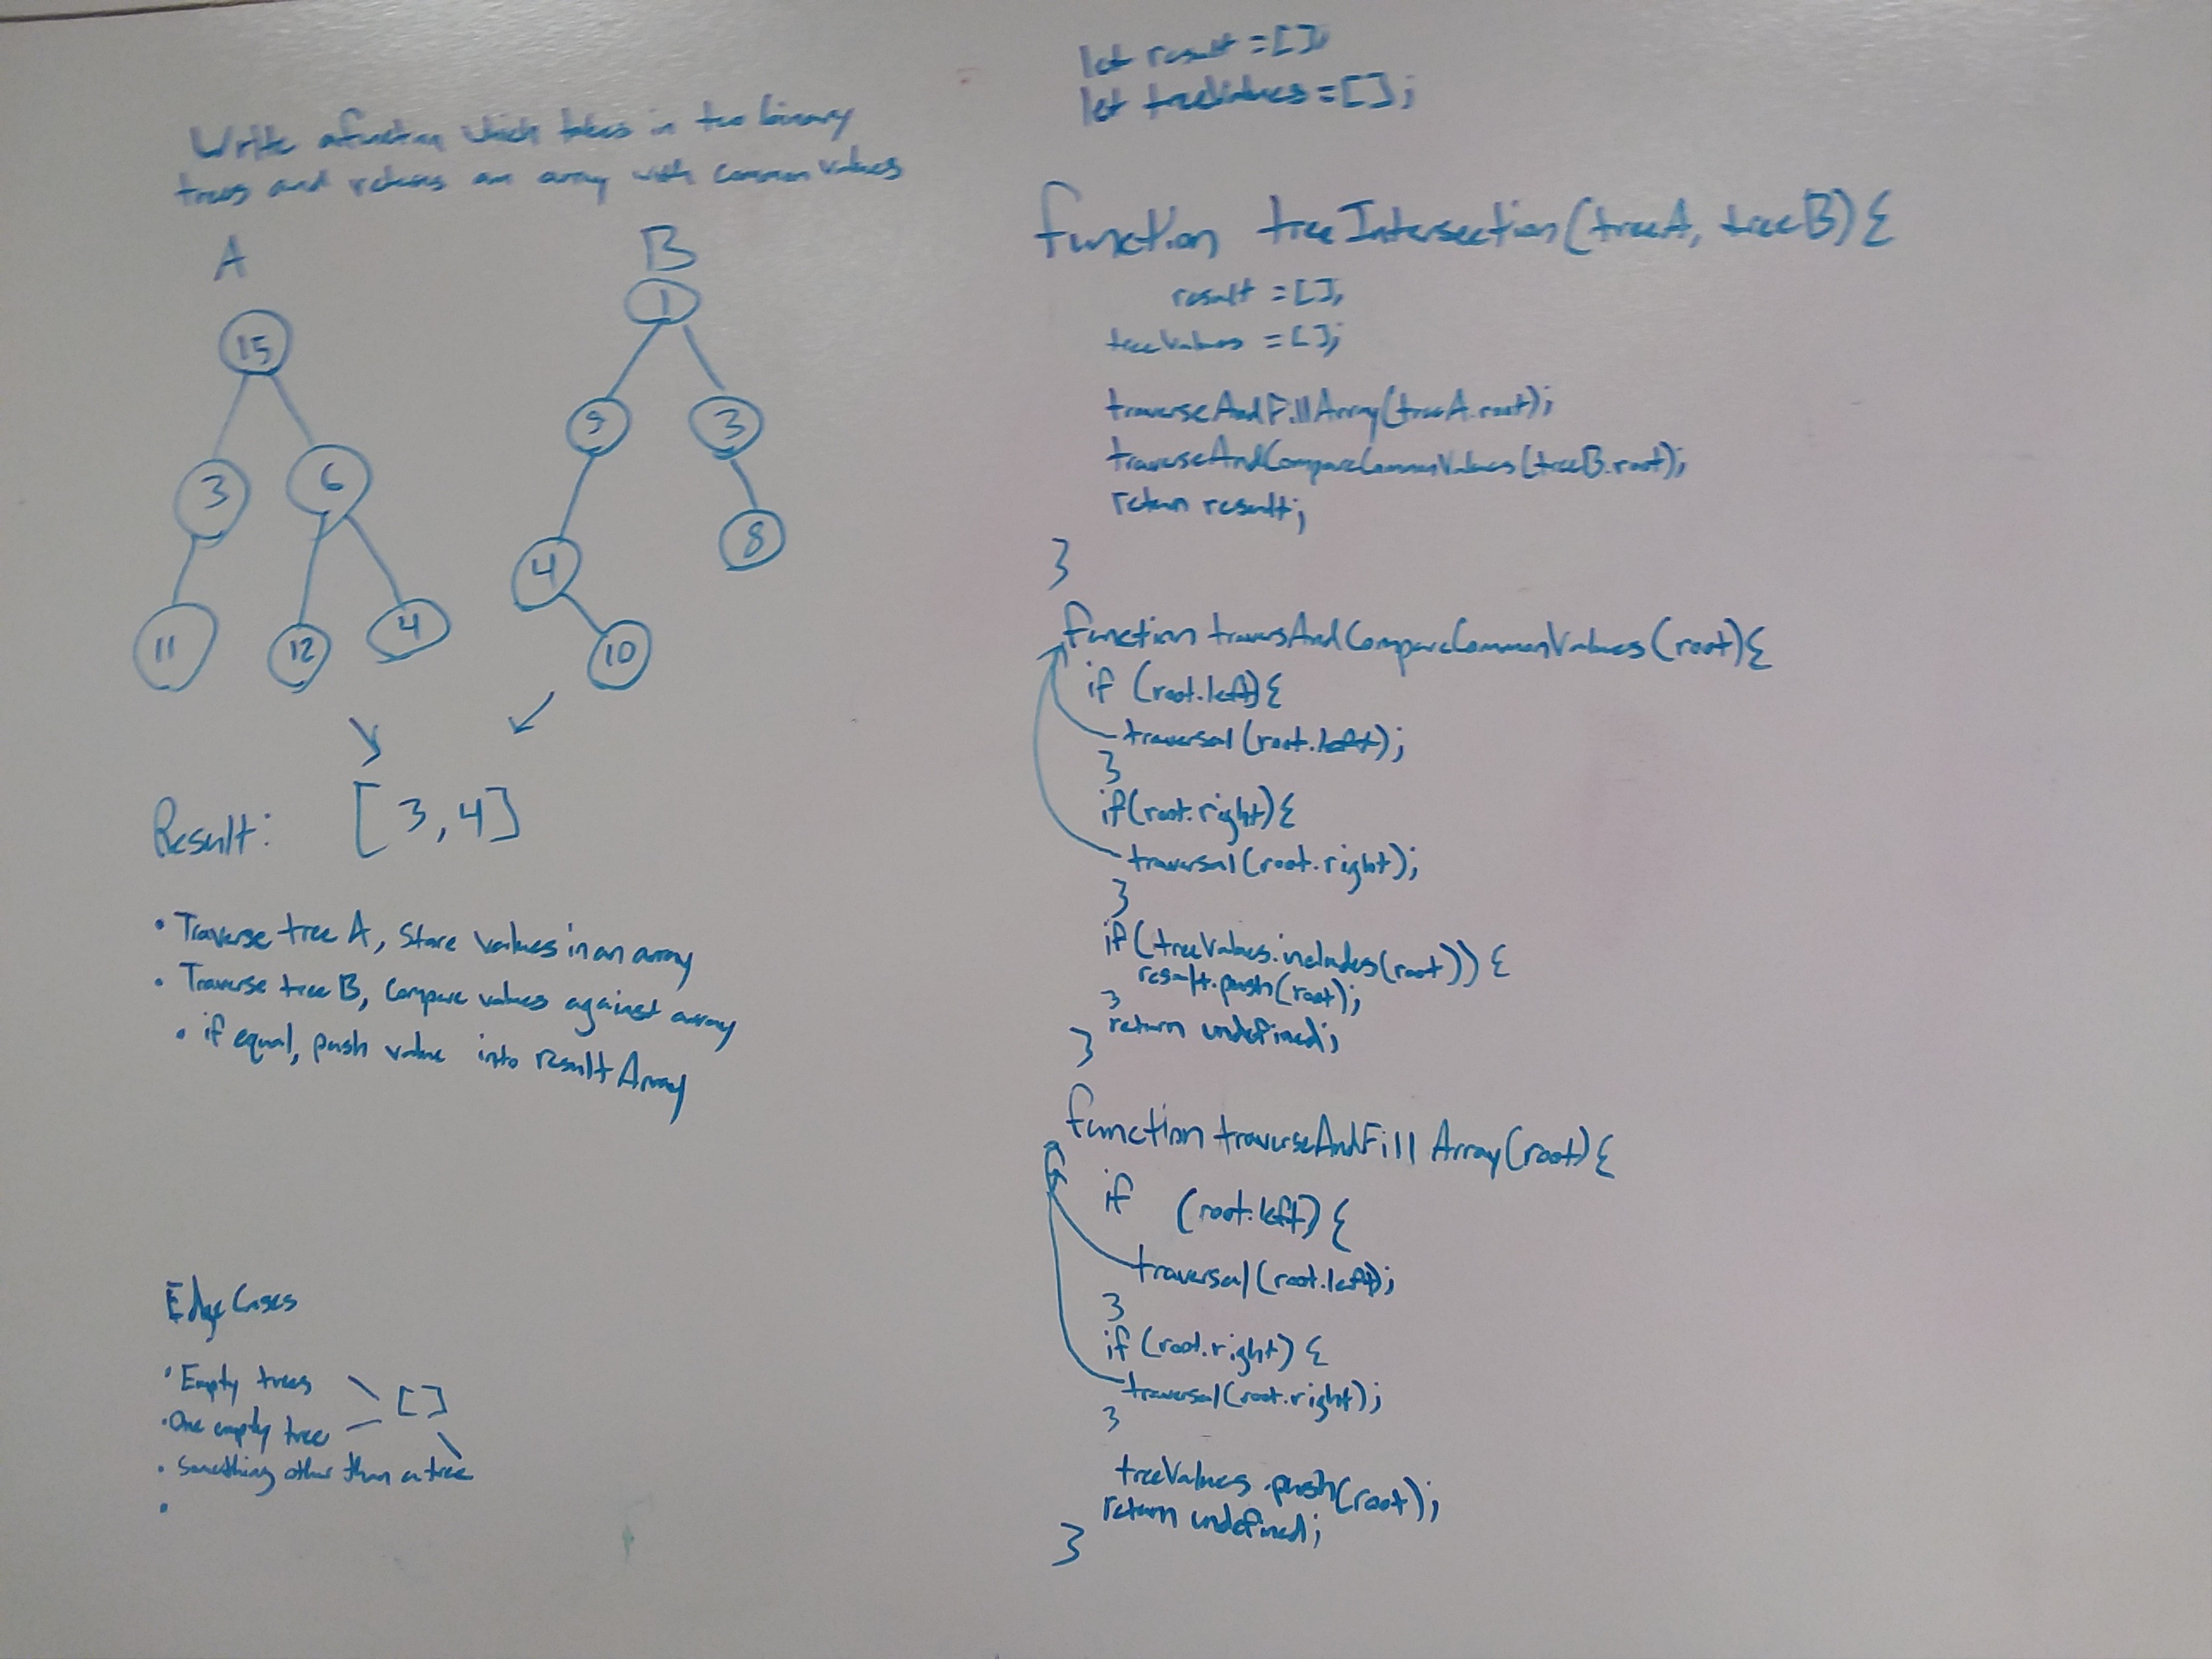 Write a function which takes in two binary
trees and returns an array with common values
A
B
15
3
6
11
12
4
1
9
3
4
8
10
Result: [3, 4]
• Traverse tree A, Store values in an array
• Traverse tree B, Compare values against array
• if equal, push value into result Array
Edge Cases
• Empty trees
• One empty tree
[]
• Something other than a tree
•
let result = []
let treeValues = [];
function treeIntersection(treeA, treeB){
result = [],
treeValues = [];
traverseAndFillArray(treeA.root);
traverseAndCompareCommonValues(treeB.root);
return result;
}
function traversAndCompareCommonValues(root){
if (root.left){
traversal(root.left);
}
if(root.right){
traversal(root.right);
}
if(treeValues.includes(root)) {
result.push(root);
}
return undefined;
}
function traverseAndFill Array(root){
if (root.left) {
traversal(root.left);
}
if (root.right) {
traversal(root.right);
}
treeValues.push(root);
return undefined;
}